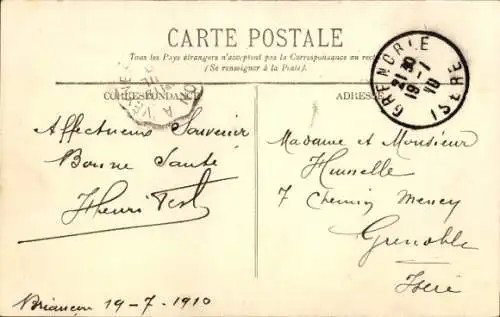 CARTE POSTALE
Tous les Pays étrangers n'acceptent pas la Correspondance au recto
(Se renseigner à la Poste).
CORRESPONDANCE
ADRESSE
GRENOBLE
21 30
19 - 7
10
ISERE
Affectueux Souvenir
Bonne Santé
Henri
Madame et Monsieur
7 Chemin
Grenoble
Isère
Briançon 19-7-1910